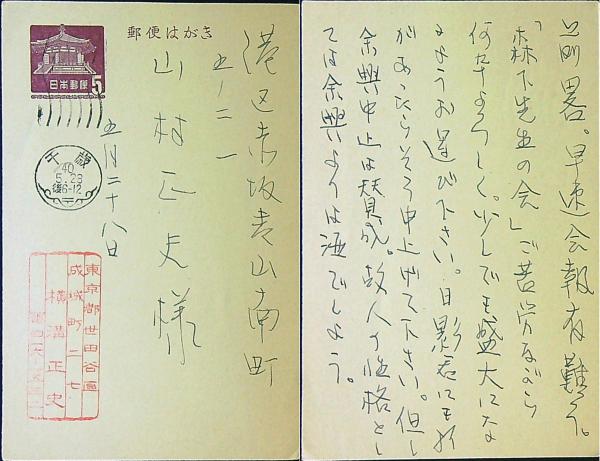 郵便はがき
日本郵便
5
千歳
40
5.28
後6-12
港区赤坂青山南町
五ノ二一
山村正夫様
五月二十八日
東京都世田谷區
成城町二七
横溝正史
前略。早速会報有難う。
「森下先生の会」ご苦労ながら
何分よろしく。少しでも盛大にな
るようお運び下さい。日影君にも折
があったらそう申上げて下さい。但し
余興中止は賛成。故人の性格とし
ては余興よりは酒でしょう。